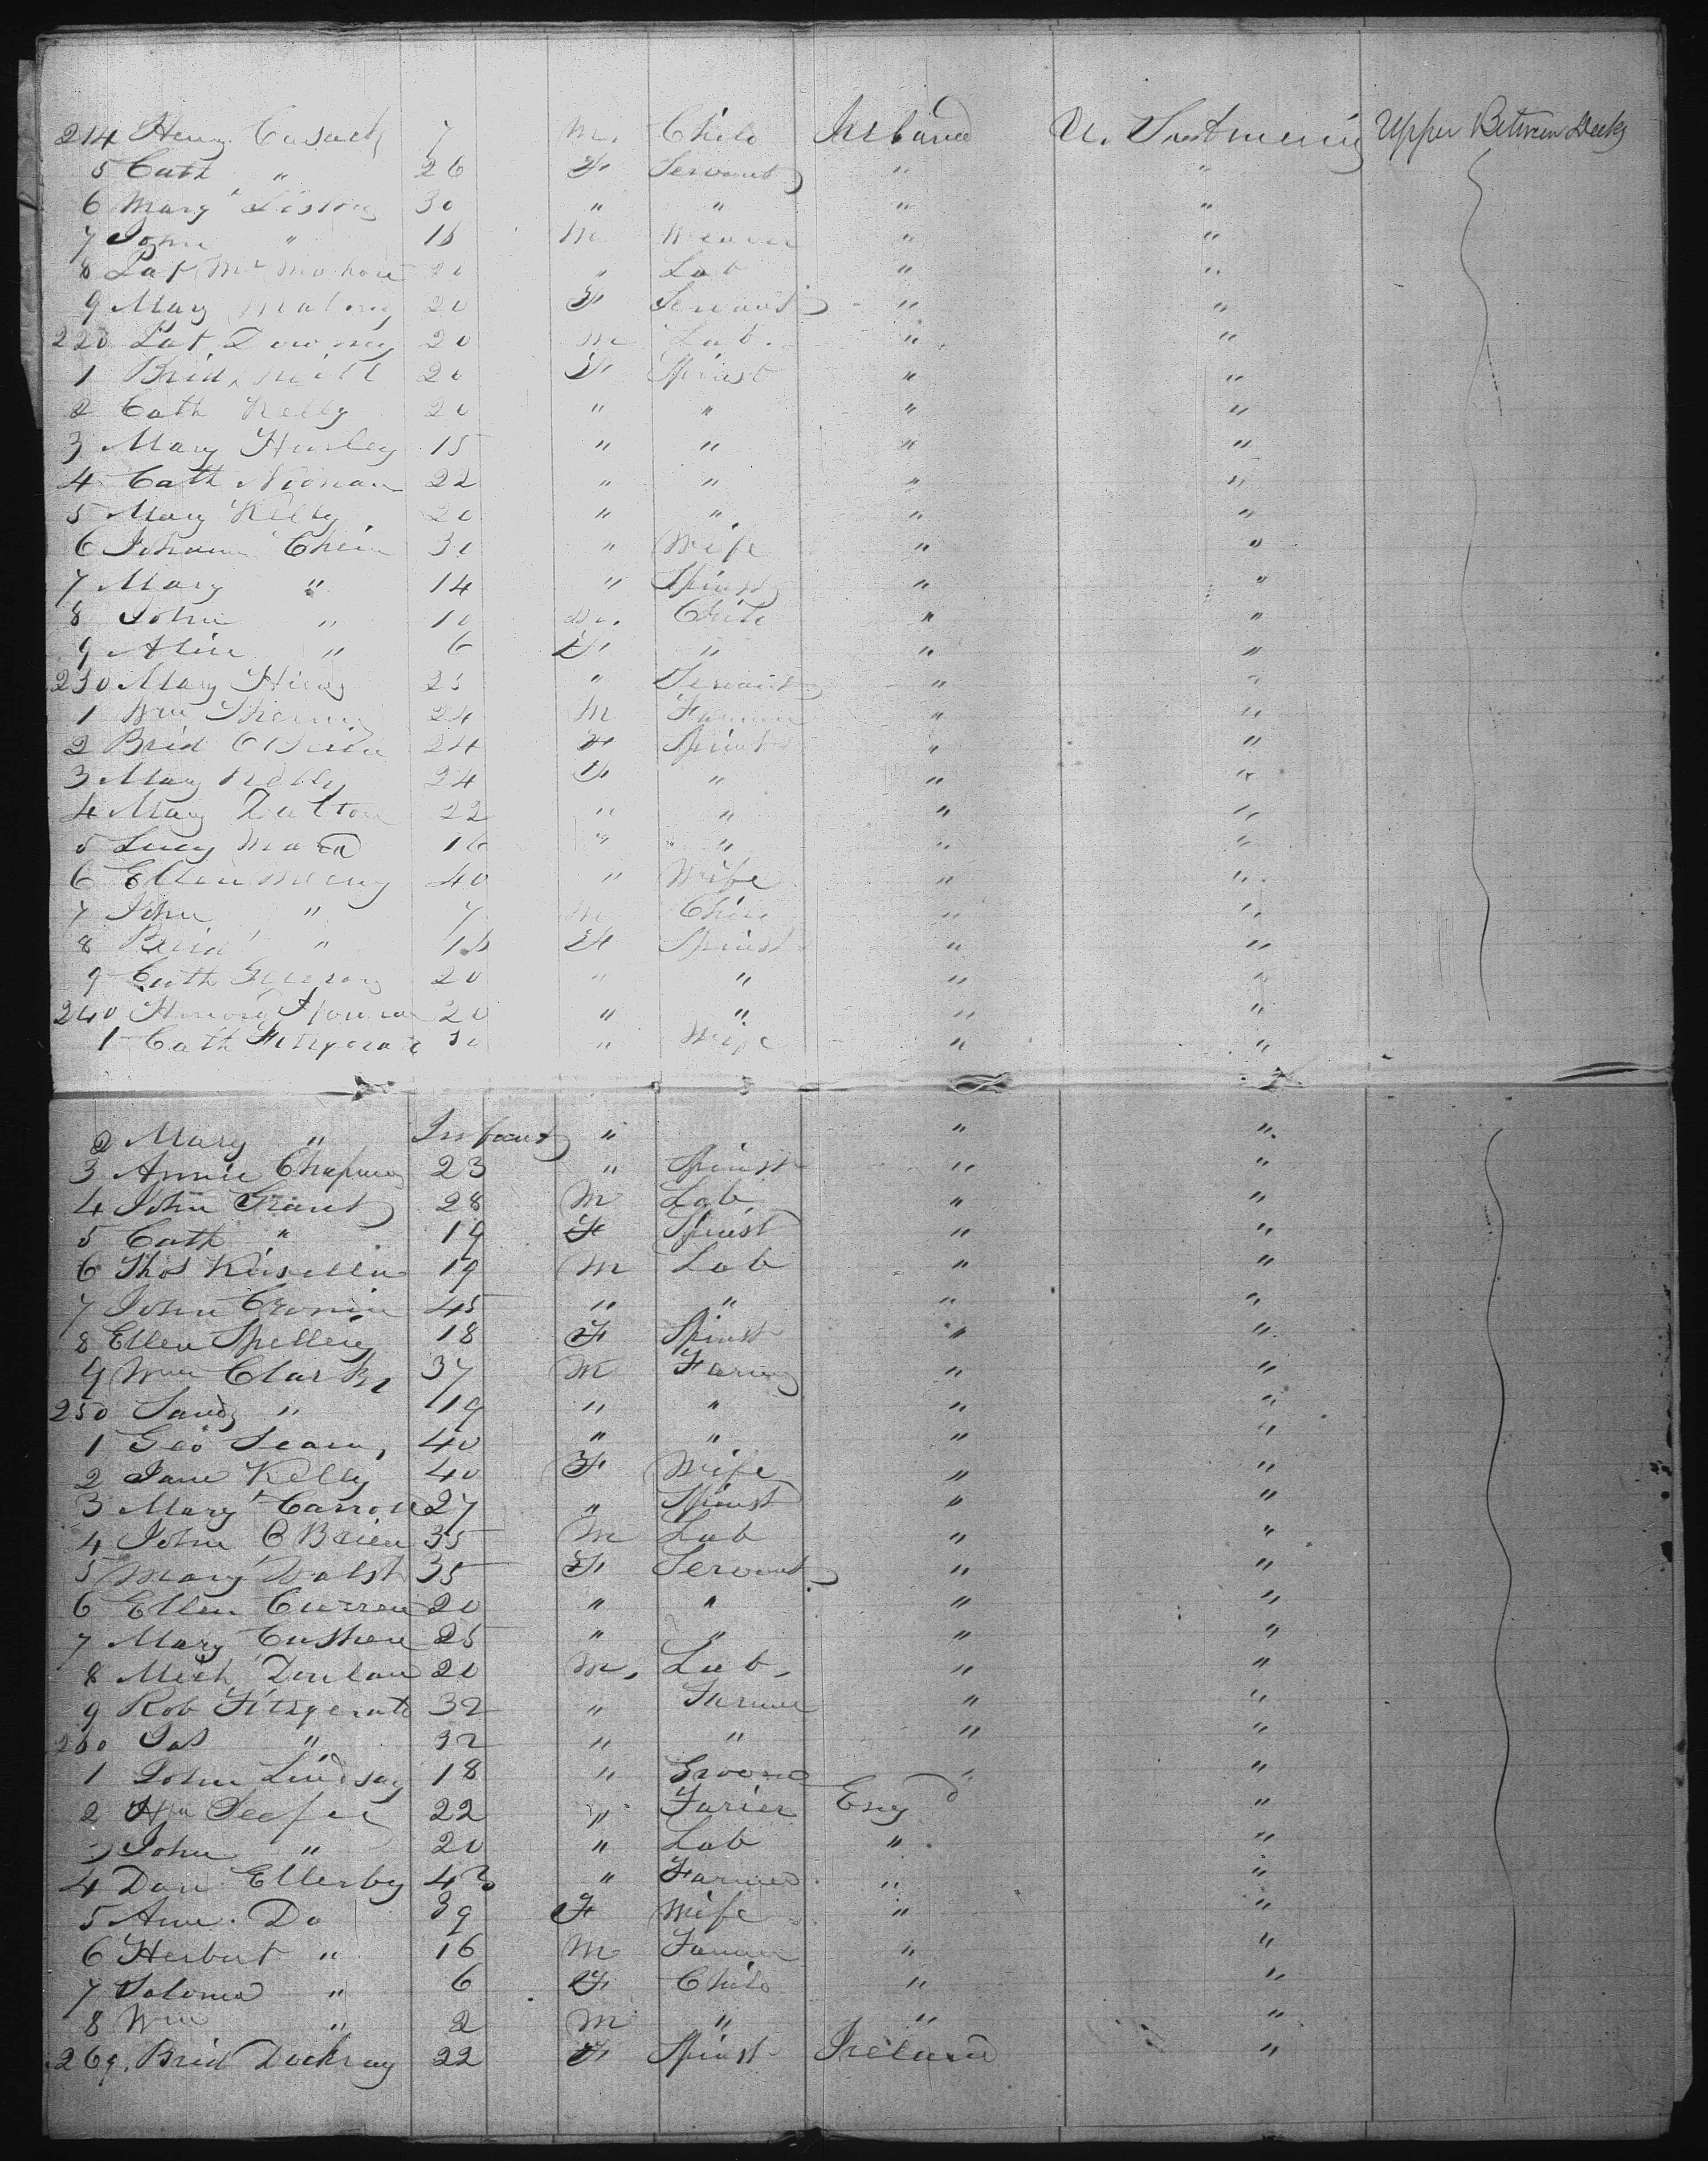 214 Henry Cusack 7 M. Child Ireland U. States Upper Between Decks
5 Cath " 26 F Servant " "
6 Marg 30 " " " "
7 John " 18 M Weaver " "
8 Pat McMahon 20 " Lab " "
9 Mary 20 F Servant " "
220 Pat Downey 20 M Lab. " "
1 Brid Neill 20 F Spinst " "
2 Cath Kelly 20 " " " "
3 Mary Hurley 15 " " " "
4 Cath Noonan 22 " " " "
5 Mary Kelly 20 " " " "
6 Johanna 30 " Wife " "
7 Mary " 14 " Spinst " "
8 John " 10 M. Child " "
9 Alice " 6 F " " "
230 Mary 25 " Servant " "
1 Wm 24 M Farmer " "
2 Brid OBrien 24 F Spinst " "
3 Mary Kelly 24 F " " "
4 Mary Dalton 22 " " " "
5 Lucy Mara 16 " " " "
6 Ellen 40 " Wife " "
7 John " 7 M Child " "
8 Brid " F Spinst " "
9 Cath 20 " " " "
240 20 " " " "
1 Cath Fitzgerald 30 " Wife " "
2 Mary " Infant " " "
3 Annie Chapman 23 " Spinst " "
4 John Grant 28 M Lab " "
5 Cath " 19 F Spinst " "
6 Thos Kinsella 19 M Lab " "
7 John Cronin 45 " " " "
8 Ellen 18 F Spinst " "
9 Wm Clark 37 M Farmer " "
250 Sandy " 19 " " " "
1 Geo 40 " " " "
2 Jane Kelly 40 F Wife " "
3 Mary Carroll 27 " Spinst " "
4 John OBrien 35 M Lab " "
5 Mary Walsh 35 F Servant " "
6 Ellen Curren 20 " " " "
7 Mary Cushen 25 " " " "
8 Mich Donlan 20 M. Lab. " "
9 Rob Fitzgerald 32 " Farmer " "
260 Jas " 32 " " " "
1 John Lindsay 18 " Groom " "
2 22 " Farier Engd "
3 John " 20 " Lab " "
4 Dan Ellerby 43 " Farmer " "
5 Ann. Do 39 F Wife " "
6 Herbert " 16 M Farmer " "
7 Saloma " 6 F Child " "
8 Wm " 2 M " " "
269. Brid Dockray 22 F Spinst Ireland "